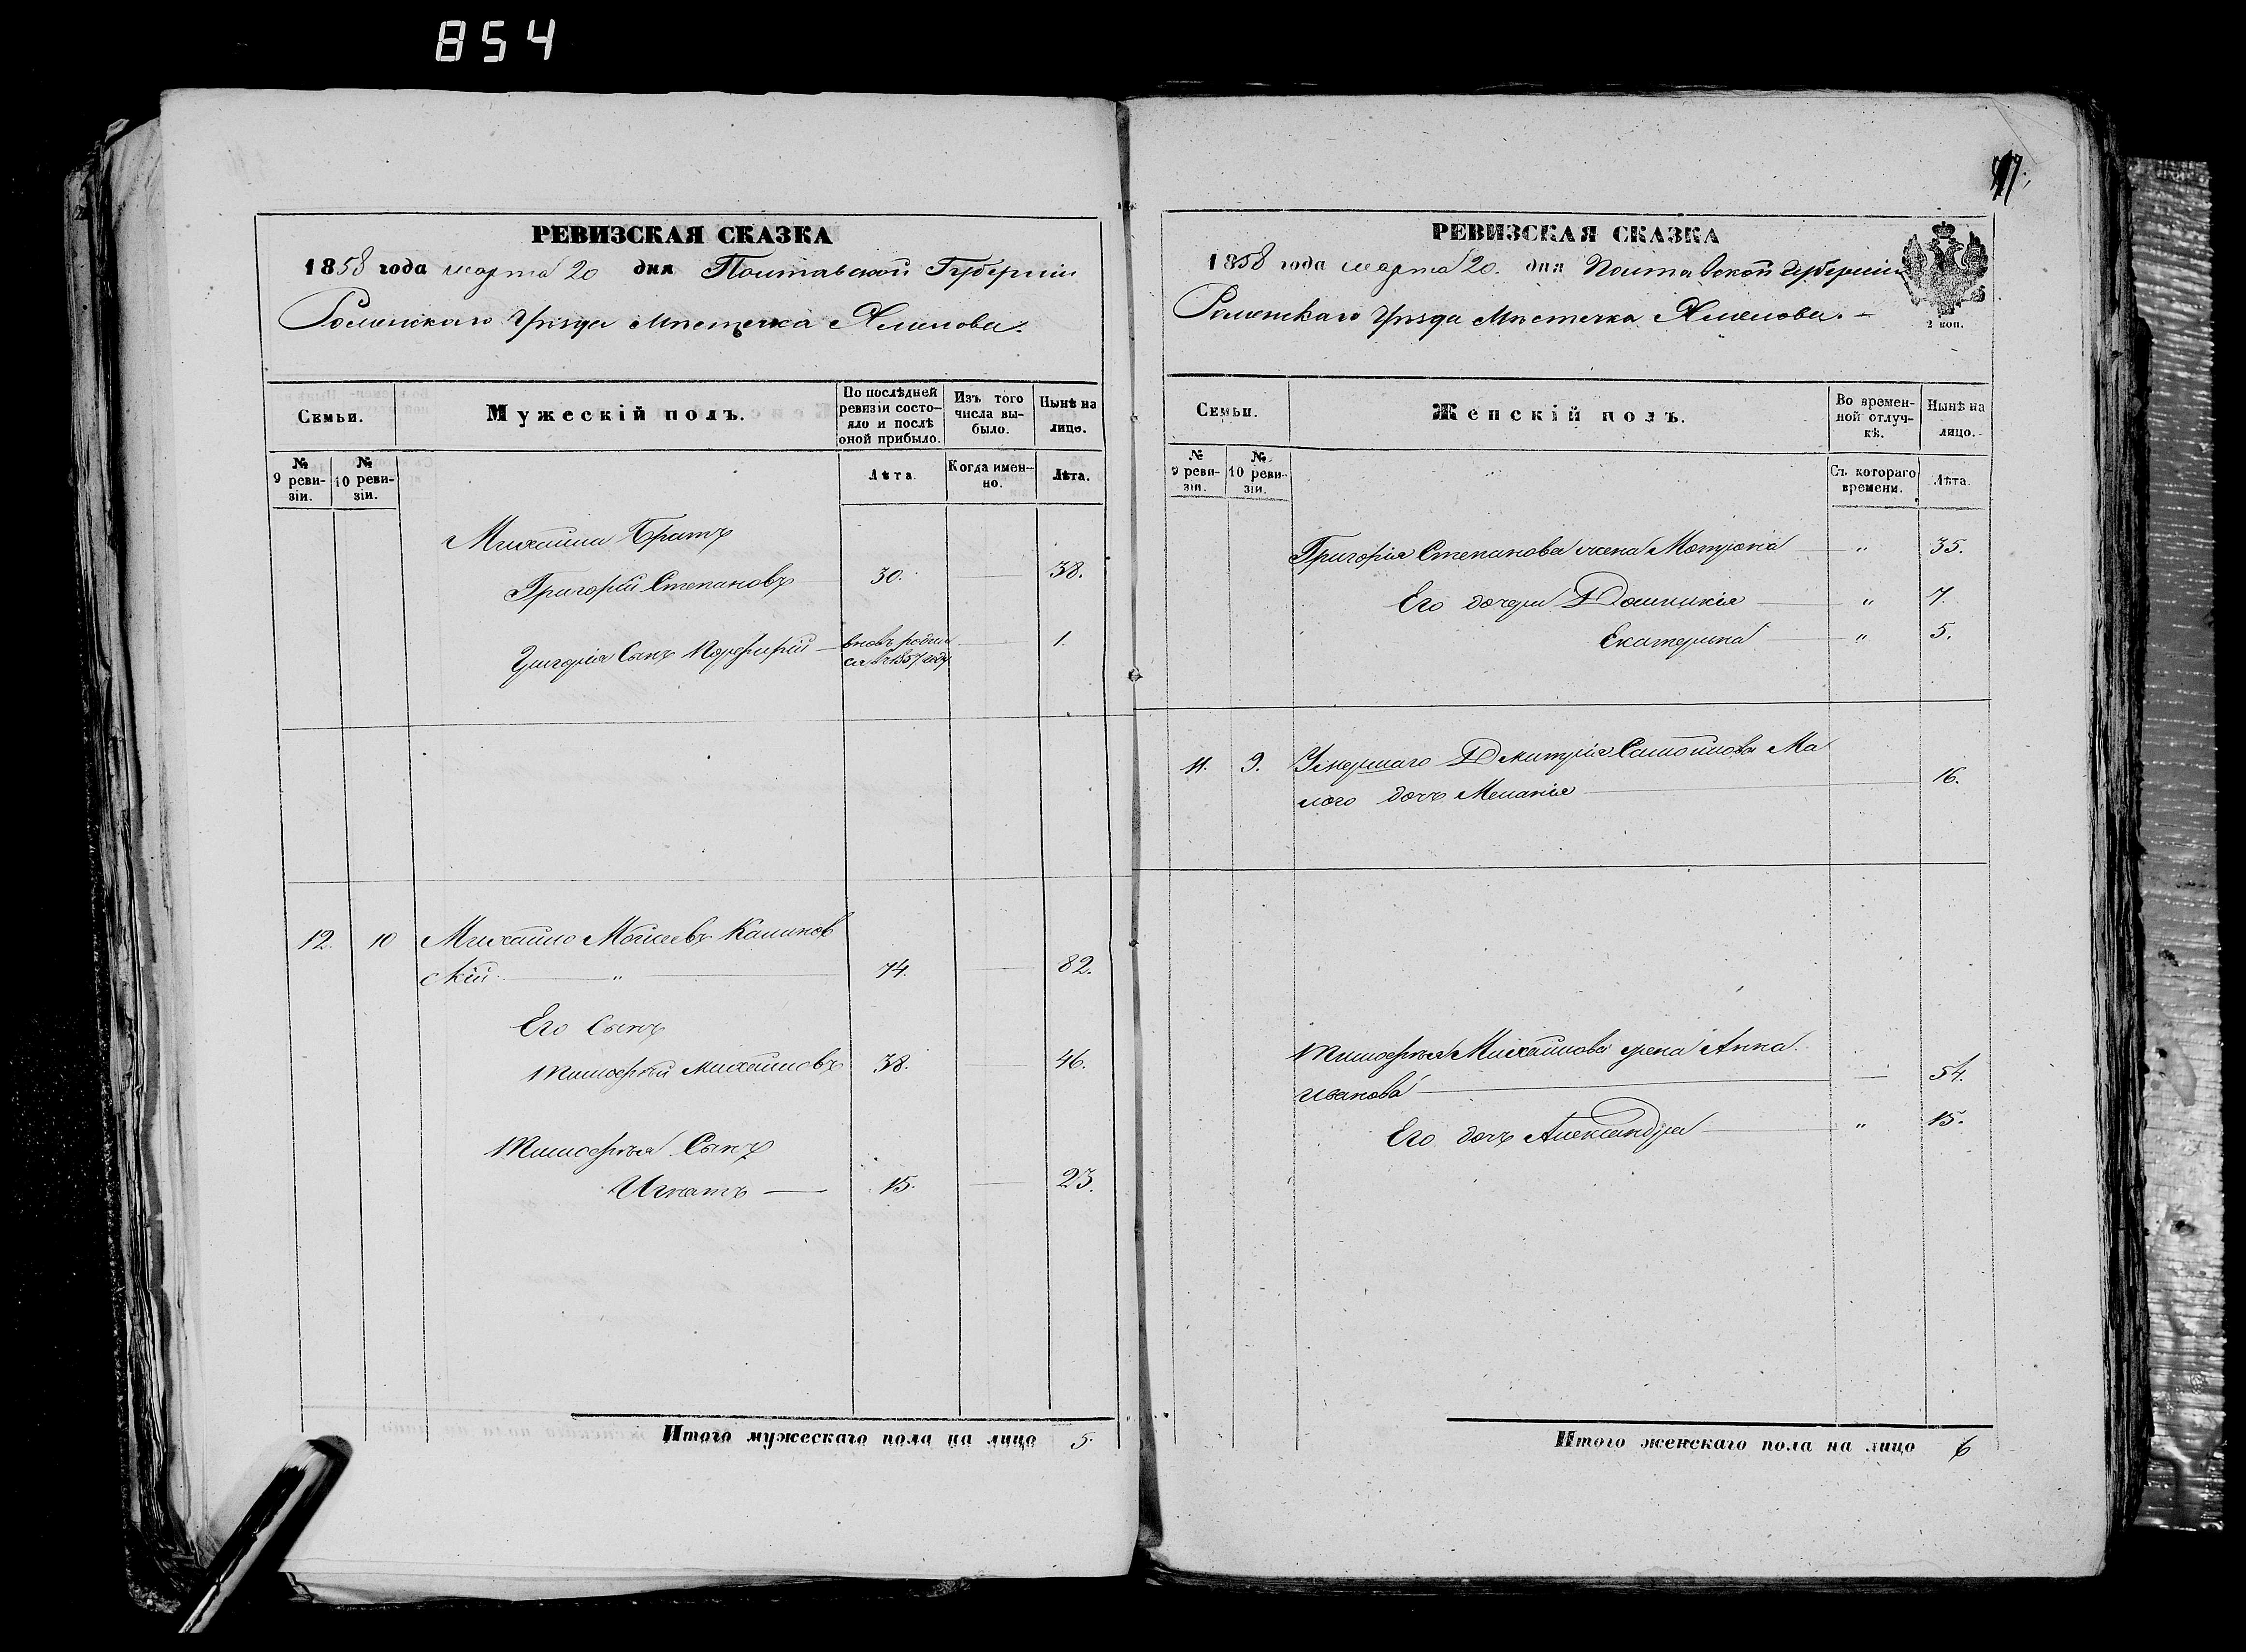 854
РЕВИЗСКАЯ СКАЗКА
1858 года марта 20 дня Полтавской Губернiи
Роменскаго Уѣзда Мѣстечка Смѣлова.
Семьи.
Мужескiй полъ.
По послѣдней ревизiи состо-
яло и послѣ
оной прибыло.
Изъ того
числа вы-
было.
Нынѣ на
лицо.
№
9 реви-
зiи.
№
10 реви-
зiи.
Лѣта.
Когда имен-
но.
Лѣта.
Михайла Братъ
Григорiй Степановъ 30. 38.
Григорiя Сынъ Порфирiй вновь родил
ся въ 1857 году 1.
12. 10 Михайло Моисеевъ Калинов
скiй " 74. 82.
Его Сынъ
Тимофей Михайловъ 38. 46.
Тимофея Сынъ
Игнатъ 15. 23.
Итого мужескаго пола на лицо 5.
РЕВИЗСКАЯ СКАЗКА
1858 года марта 20. дня Полтавской Губернiи
Роменскаго Уѣзда Мѣстечка Смѣлова.
2 коп.
Семьи.
Женскiй полъ.
Во времен-
ной отлуч-
кѣ.
Нынѣ на
лицо.
№
9 реви-
зiи.
№
10 реви-
зiи.
Съ котораго
времени.
Лѣта.
Григорiя Степанова жена Мотрона " 35.
Его дочери Домникiя " 7.
Екатерина " 5.
11. 9. Умершаго Дмитрiя Самойлова Ма
лого дочь Меланiя 16.
Тимофея Михайлова жена Анна
Иванова 54.
Его дочь Александра " 15.
Итого женскаго пола на лицо 6